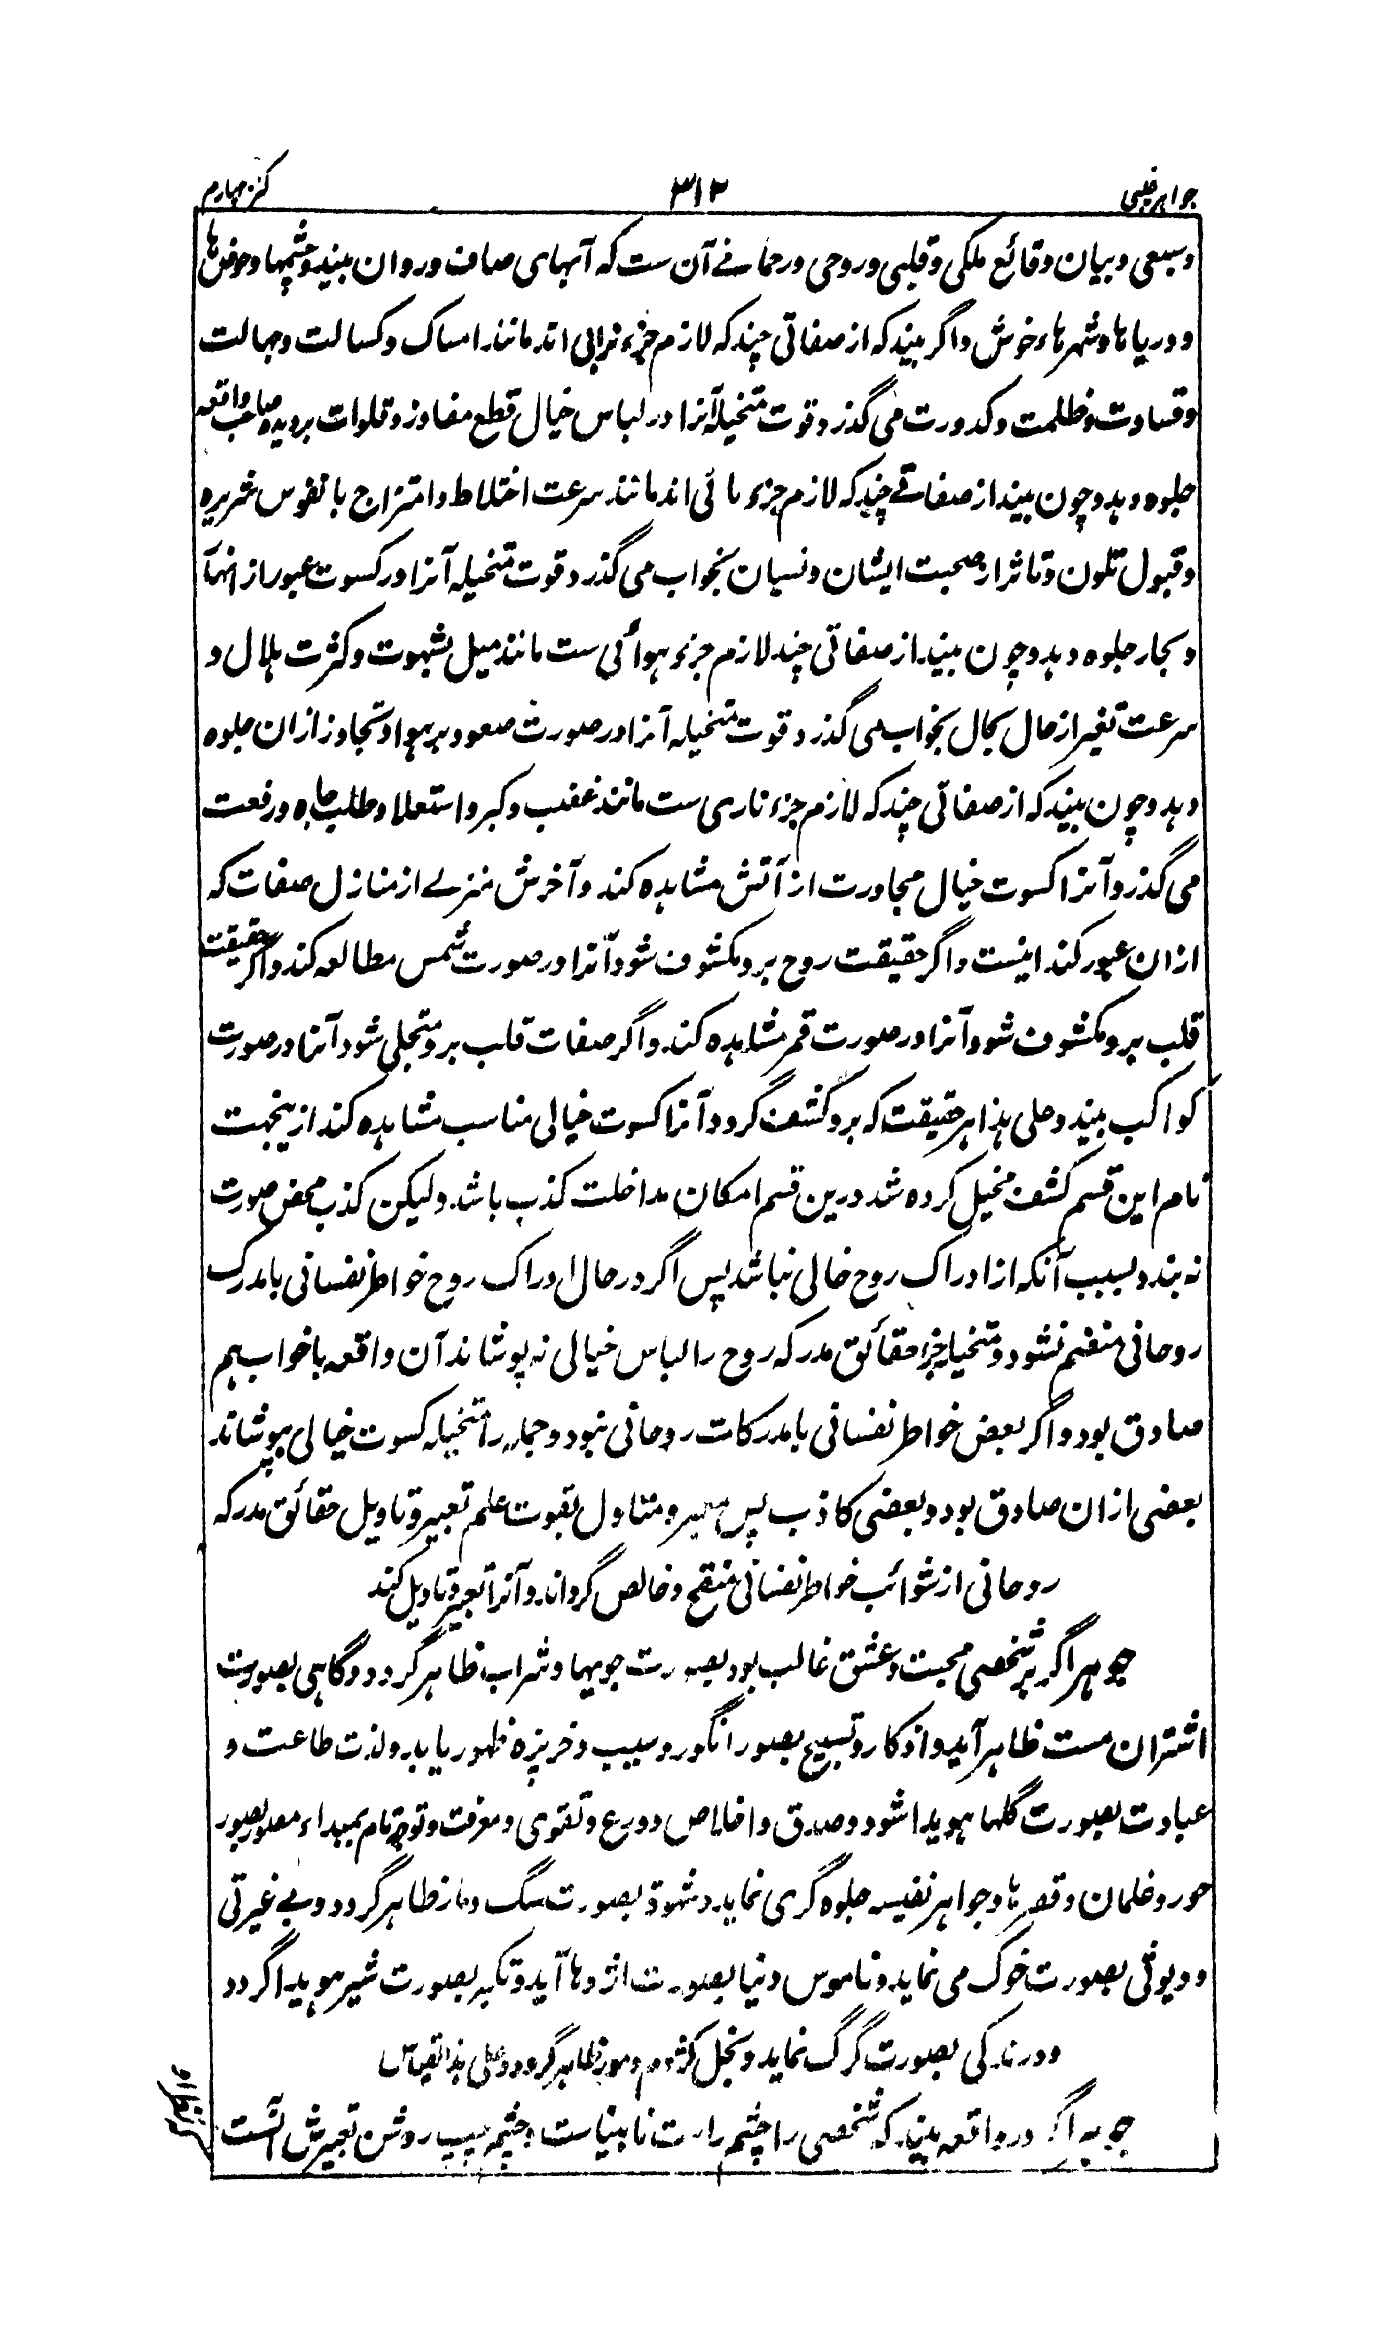 جواهر غیبی ۳۱۲ کنز چهارم
و سبعی و بیان وقائع ملکی و قلبی و روحی و رحمانے آن ست کہ آبہای صاف و روان بیند و چشمہا و حوض ہا
و دریا ہا و شہر ہاء خوش و اگر بیند کہ از صفاتی چند کہ لازم جزء ترابی اند مانند امساک و کسالت و جہالت
و قساوت و ظلمت و کدورت می گذرد قوت متخیلہ آنرا در لباس خیال قطع مفاوز و فلوات بر دیدہ صاحب واقعہ
جلوہ دہد و چون بیند از صفاتے چند کہ لازم جزء مائی اند مانند سرعت اختلاط و امتزاج با نفوس شریرہ
و قبول تلون و تاثر از صحبت ایشان و نسیان بخواب می گذرد قوت متخیلہ آنرا در کسوت عبور از انہا
و بحار جلوہ دہد و چون بیند از صفاتی چند لازم جزء ہوائی ست مانند میل بشہوت و کثرت ملال و
سرعت تغیر از حال بحال بخواب می گذرد قوت متخیلہ آنرا در صورت صعود بر ہوا و تجاوز ازان جلوہ
دہد و چون بیند کہ از صفاتی چند کہ لازم جزء ناری ست مانند غضب و کبر و استعلا و طلب جاہ و رفعت
می گذرد آنرا کسوت خیال مجاورت از آتش مشاہدہ کند و آخرش منزلے از منازل صفات کہ
ازان عبور کند اینست و اگر حقیقت روح برو مکشوف شود آنرا در صورت شمس مطالعہ کند و اگر حقیقت
قلب برو مکشوف شود آنرا در صورت قمر مشاہدہ کند و اگر صفات قلب برو متجلی شود آنرا در صورت
کواکب بیند و علی ہذا ہر حقیقت کہ برو کشف گردد آنرا کسوت خیالی مناسب مشاہدہ کند ازینجہت
نام این قسم کشف مخیل کردہ شد درین قسم امکان مداخلت کذب باشد و لیکن کذب محض صورت
نہ بندد بسبب آنکہ از ادراک روح خالی نباشد پس اگر در حال ادراک روح خواطر نفسانی با مدرک
روحانی منضم نشود و متخیلہ جزء حقائق مدرکہ روح را لباس خیالی نہ پوشاند آن واقعہ با خواب ہم
صادق بود و اگر بعض خواطر نفسانی با مدرکات روحانی بود و جملہ را متخیلہ کسوت خیالی بپوشاند
بعضی ازان صادق بود و بعضی کاذب پس معبر و متاول بقوت علم تعبیر و تاویل حقائق مدرکہ
روحانی از شوائب خواطر نفسانی منقح و خالص گرداند و آنرا تعبیر و تاویل کند
جوہر اگر بر شخصی محبت و عشق غالب بود بصورت جویہا و شراب ظاہر گردد و گاہی بصورت
اشتران مست ظاہر آید و اذکار و تسبیح بصور انگور و سیب و خربزہ ظہور یابد و لذت طاعت و
عبادت بصورت گلہا ہویدا شود و صدق و اخلاص و ورع و تقوی و معرفت و توجہ تام بمبداء مصور بصور
حور و غلمان و قصر ہا و جواہر نفیسہ جلوہ گری نماید و شہوۃ بصورت سگ و ظاہر گردد و بے غیرتی
و دیوثی بصورت خوک می نماید و ناموس دنیا بصورت اژدہا آید و تکبر بصورت شیر ہویدا گردد
و درندگی بصورت گرگ نماید و بخل کژدم و مور ظاہر گردد و علی ہذا القیاس
جوہر اگر در واقعہ بیند کہ شخصی را چشم راست نابینا است و چشم چپ روشن تعبیرش آنست